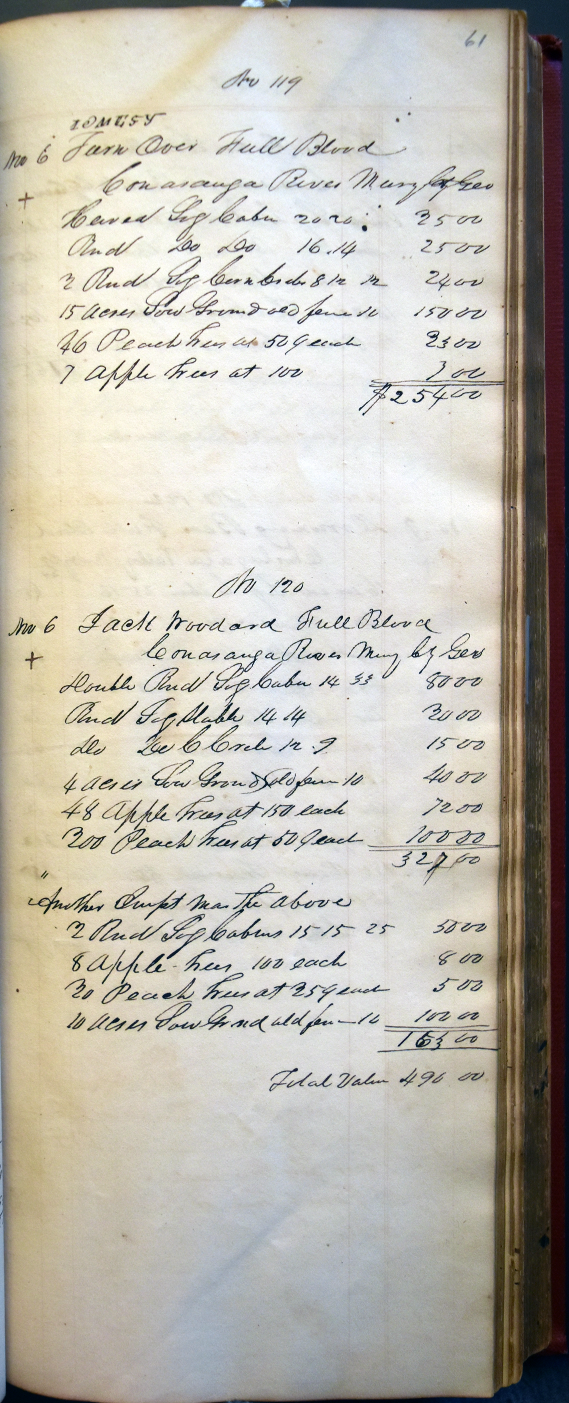 61
No 119
No 6 Turn Over Full Blood
+ Conasauga River Murry Cty Geo
Hewed Log Cabin 20 20 25 00
Rnd Do Do 16.14 25 00
2 Rnd Log Corn Cribs 8 12 12 24 00
15 acres Low Ground old fence 10 150 00
46 Peach trees at 50¢ each 23 00
7 Apple trees at 100 7 00
$254 00
No 120
No 6 Jack Woodard Full Blood
+ Conasauga River Murry Cty Geo
Double Rnd Log Cabin 14 33 80 00
Rnd Log Stable 14 14 20 00
Do Do C Crib 12 9 15 00
4 acres Low Ground Old fence 10 40 00
48 Apple trees at 150 each 72 00
200 Peach trees at 50¢ each 100 00
327 00
"
Another Impt Near the above
2 Rnd Log Cabins 15 15 25 50 00
8 Apple trees 100 each 8 00
20 Peach trees at 25¢ each 5 00
10 acres Low Grnd old fence 10 100 00
163 00
Total Value 490 00